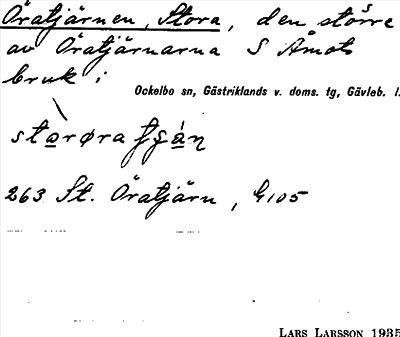 Öratjärnen, Stora, den större
av Öratjärnarna S Åmots
bruk i
Ockelbo sn, Gästriklands v. doms. tg, Gävleb. l.
263 St. Öratjärn, G105
LARS LARSSON 1935